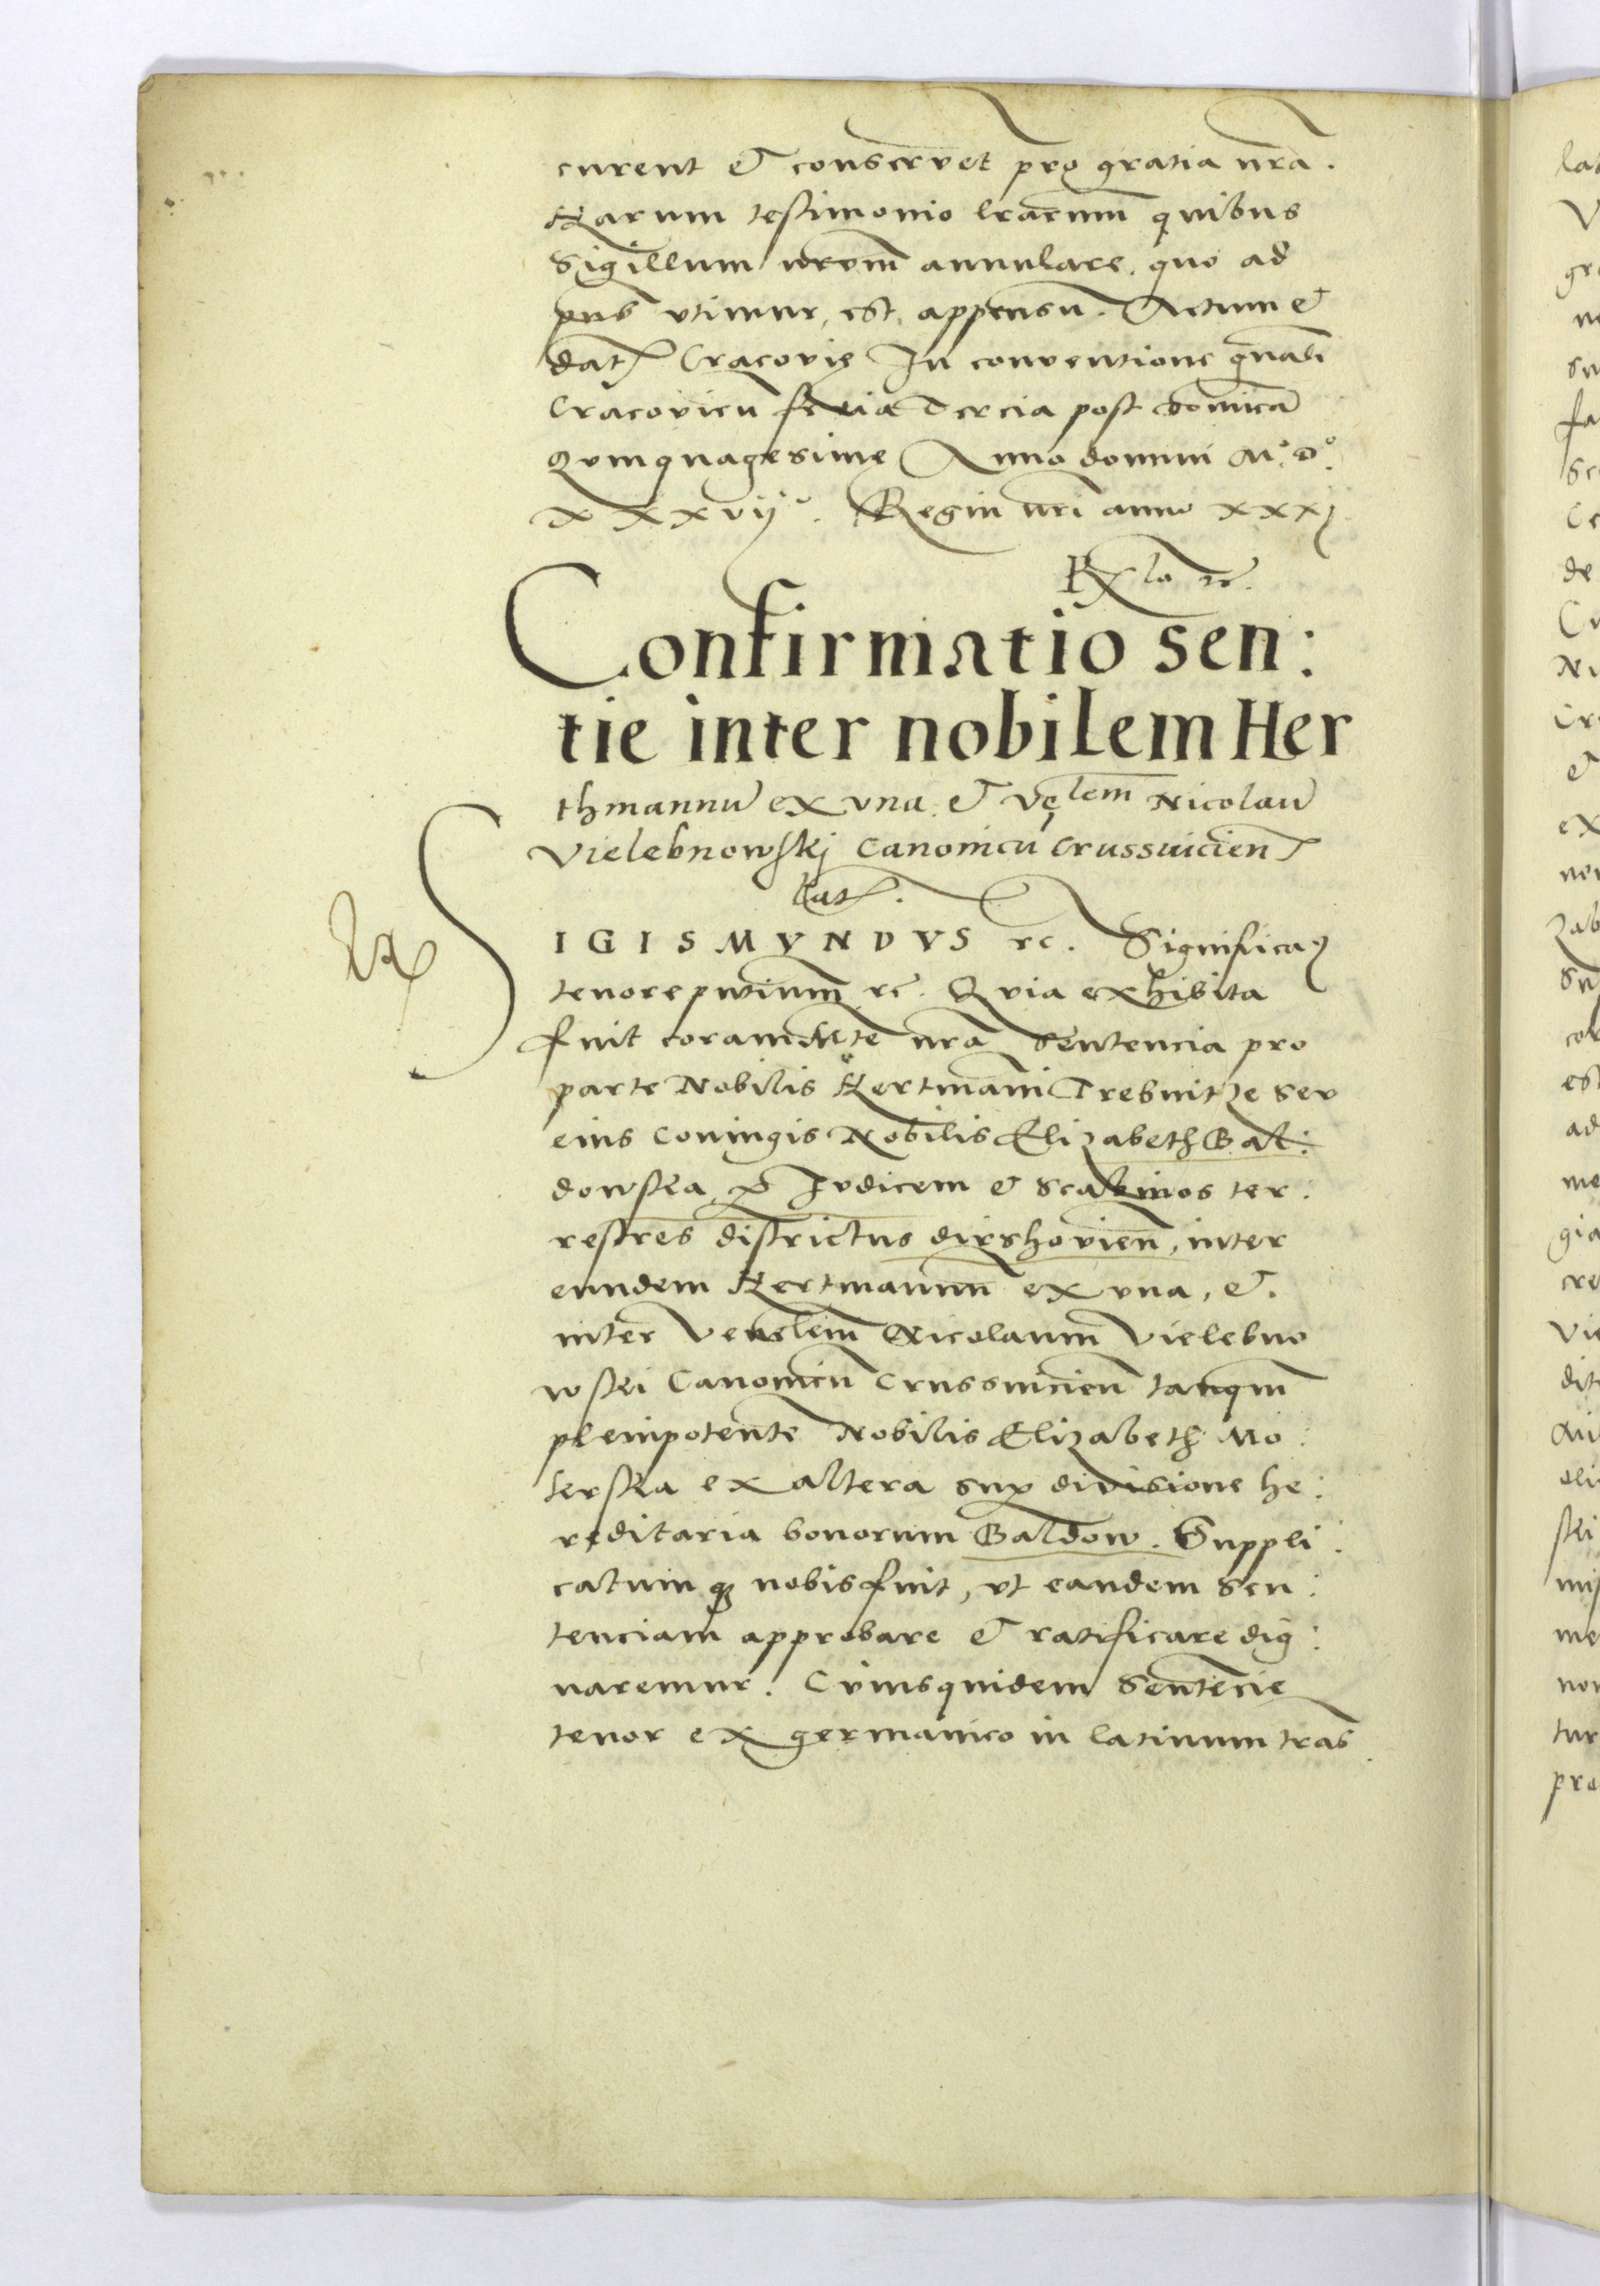 curent et conservet pro gratia nrã.
Harum testimonio lrarum quibus
Sigillum nrum annulare, quo ad
pñs vtimur, est, appensũ. Actum et
dat Cracovię In conventione gñali
Cracovieñ feria Tercia post dominicã
Qvinquagesime Anno domini M°. D°.
XXXVIJ°. Regni nri anno xxxj
Rx la rc.
Confirmatio sen:
tie inter nobilem Her
thmannũ ex vna. et vẽlem Nicolaũ
Vielebnowskj Canonicũ Crussuicieñ
lat.
SIGISMVNDVS rc. Significamus
tenore pñtium rc. Qvia exhibita
fuit coram Mte nrã Sentencia pro
parte Nobilis Hertmãni Trebnitze seu
eius Coniugis Nobilis Elizabeth Bal:
dowska, p Iudicem et Scabinos ter:
restres districtus dirshovieñ, inter
eundem Hertmannum ex vna, et.
inter Venelem Nicolaum Vielebno
wski Canonicũ Crussuicieñ tanqm
plenipotente Nobilis Elizabeth Mo:
lerska ex altera sup divisione he:
reditaria bonorum Baldow. Suppli:
catum q3 nobis fuit, vt eandem Sen:
tenciam approbare et ratificare dig:
naremur. Cuiusquidem Sentẽcie
tenor ex germanico in latinum trãs